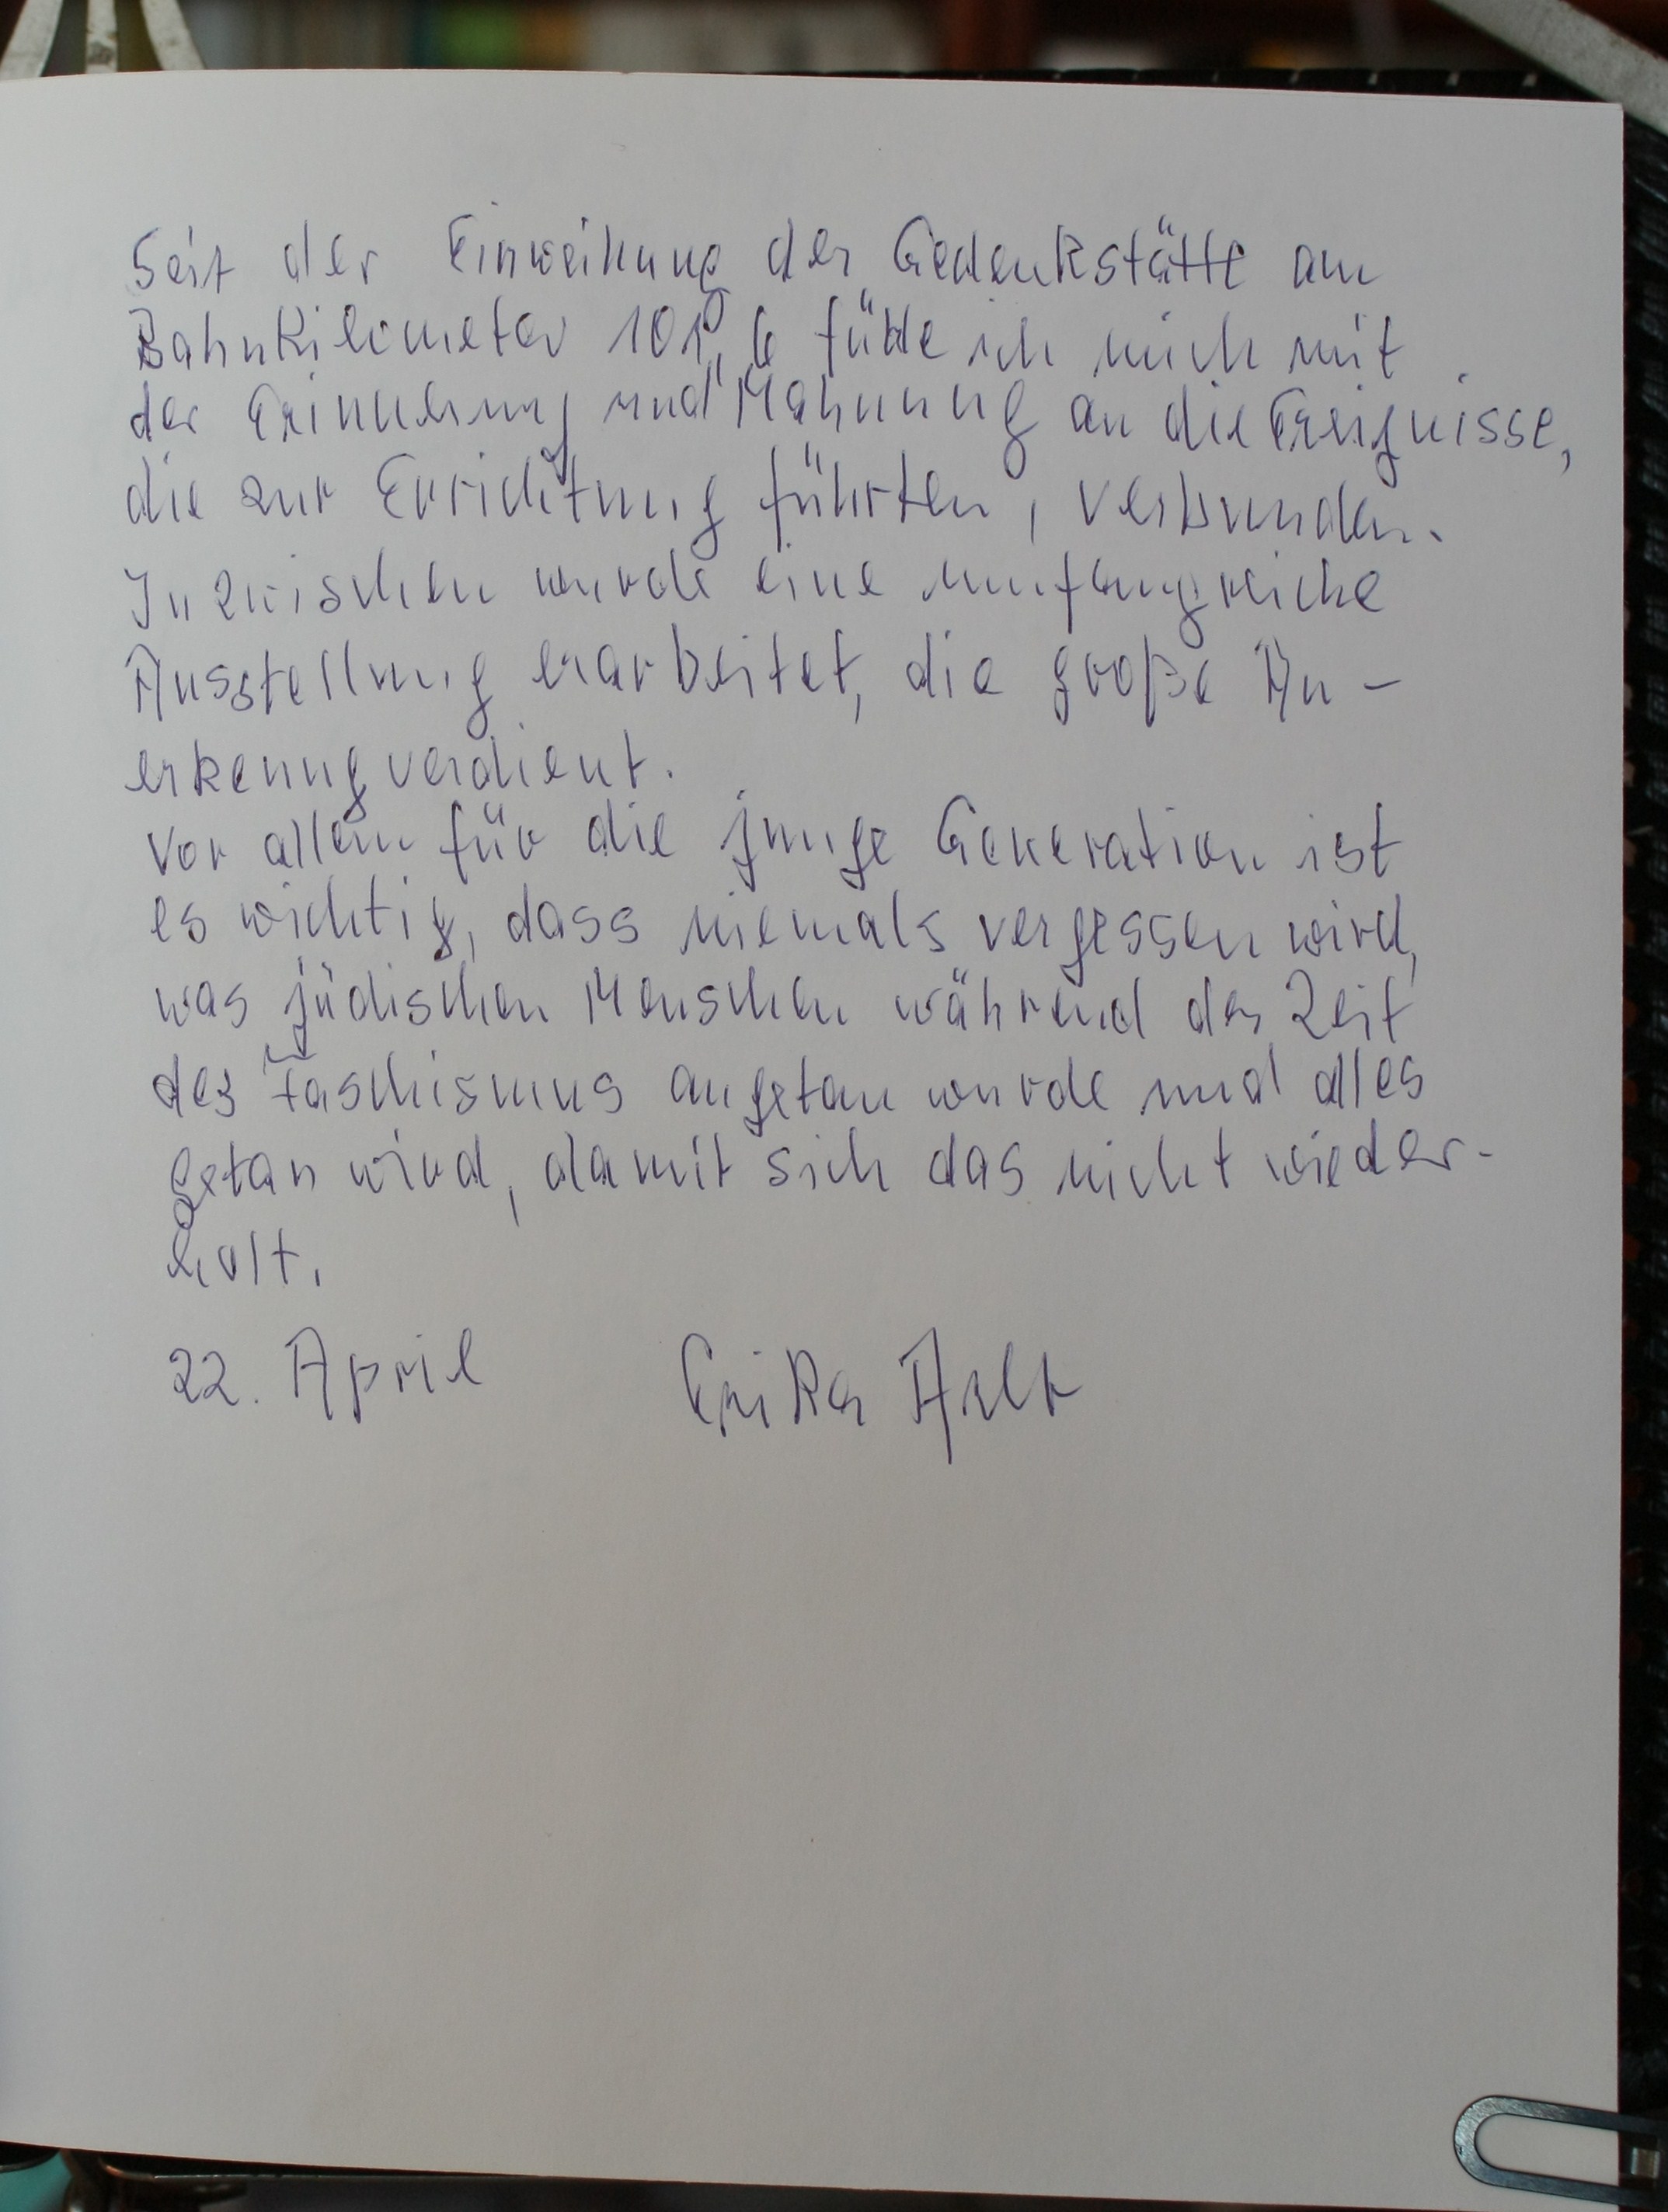 Seit der Einweihung der Gedenkstätte am
Bahnkilometer 101,6 fühle ich mich mit
der Erinnerung und Mahnung an die Ereignisse,
die zur Errichtung führten, verbunden.
Inzwischen wurde eine umfangreiche
Ausstellung erarbeitet, die große An-
erkennung verdient.
Vor allem für die junge Generation ist
es wichtig, dass niemals vergessen wird,
was jüdischen Menschen während der Zeit
des Faschismus angetan wurde und alles
getan wird, damit sich das nicht wieder-
holt.
22. April Erika